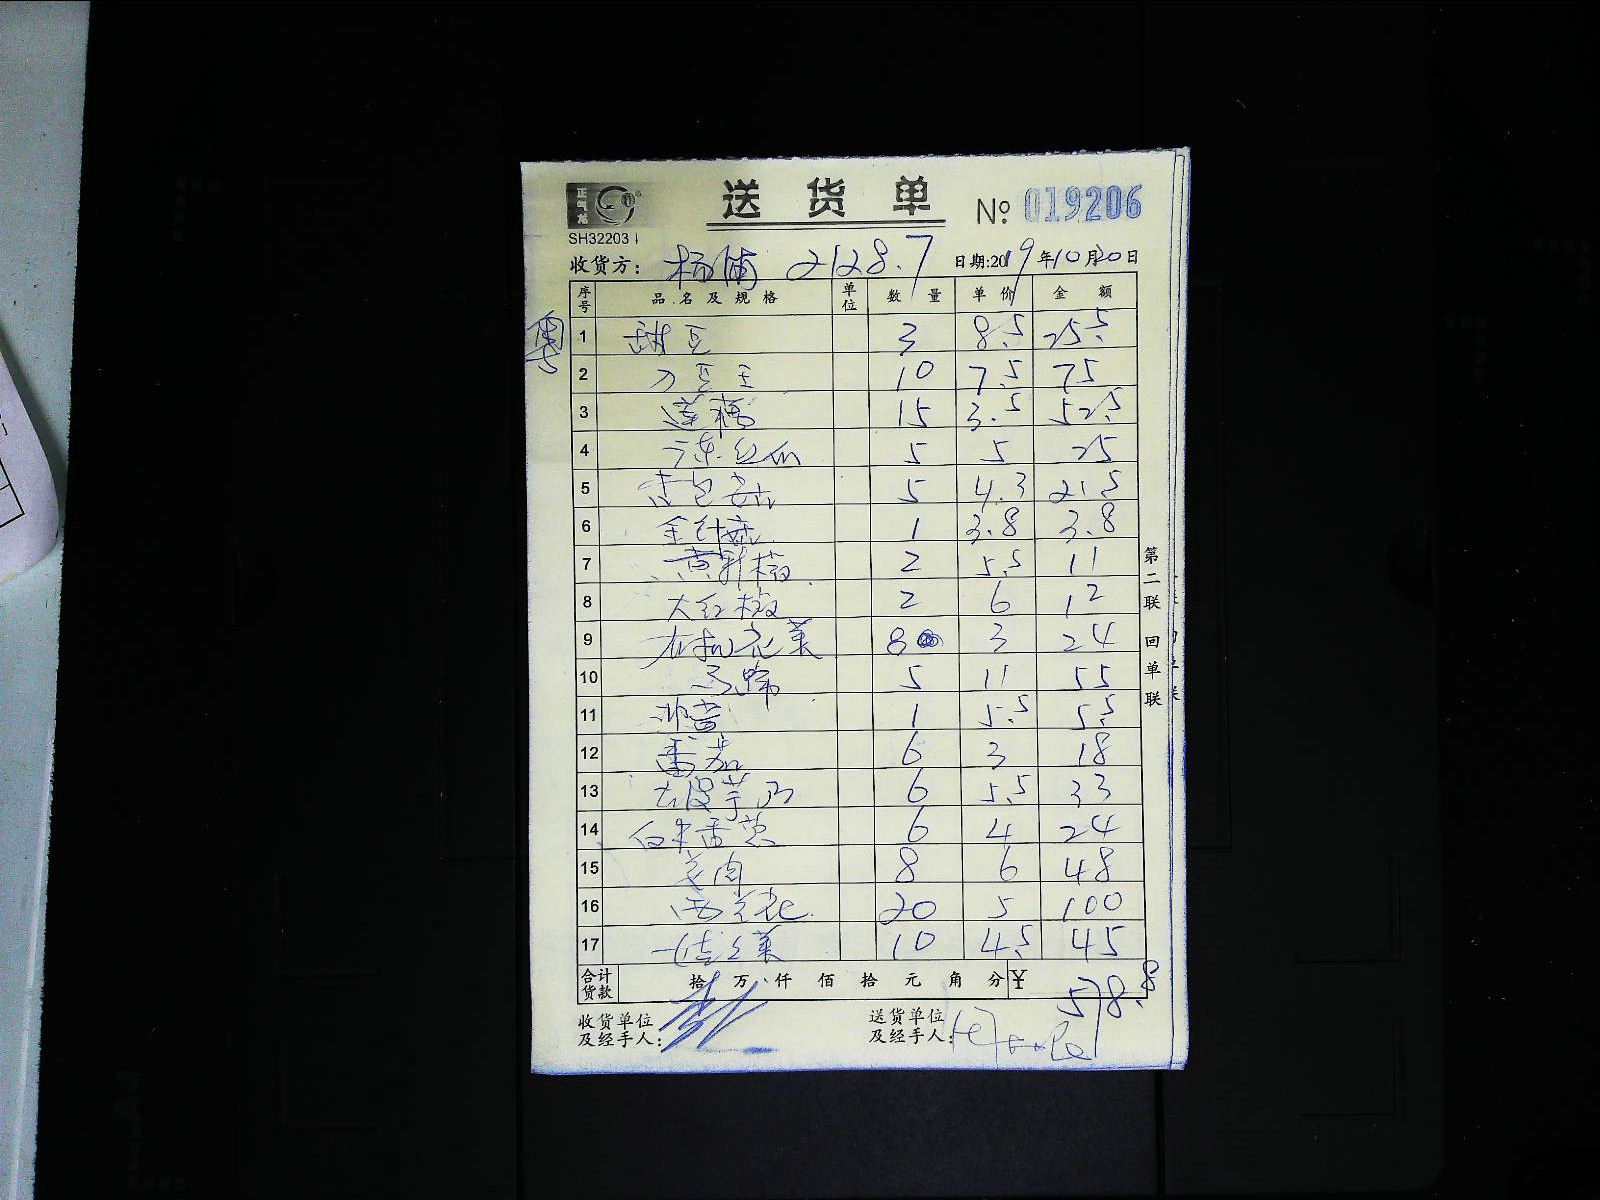 正气龙
送货单 № 019206
SH32203
收货方: 杨浦 2128.7 日期:2019年10月20日
序号 品名及规格 单位 数量 单价 金额
1 甜豆 3 8.5 25.5
2 刀豆王 10 7.5 75
3 莲藕 15 3.5 52.5
4 广东丝瓜 5 5 25
5 杏包菇 5 4.3 21.5
6 金针菇 1 3.8 3.8
7 黄彩椒 2 5.5 11
8 大红椒 2 6 12
9 有机花菜 8 3 24
10 马蹄 5 11 55
11 1 5.5 5.5
12 番茄 6 3 18
13 去皮芋艿 6 5.5 33
14 白米香葱 6 4 24
15 6 8 48
16 西兰花 20 5 100
17 10 4.5 45
合计货款 拾 万 仟 佰 拾 元 角 分 ¥ 578.8
收货单位及经手人:
送货单位及经手人:
第二联 回单联